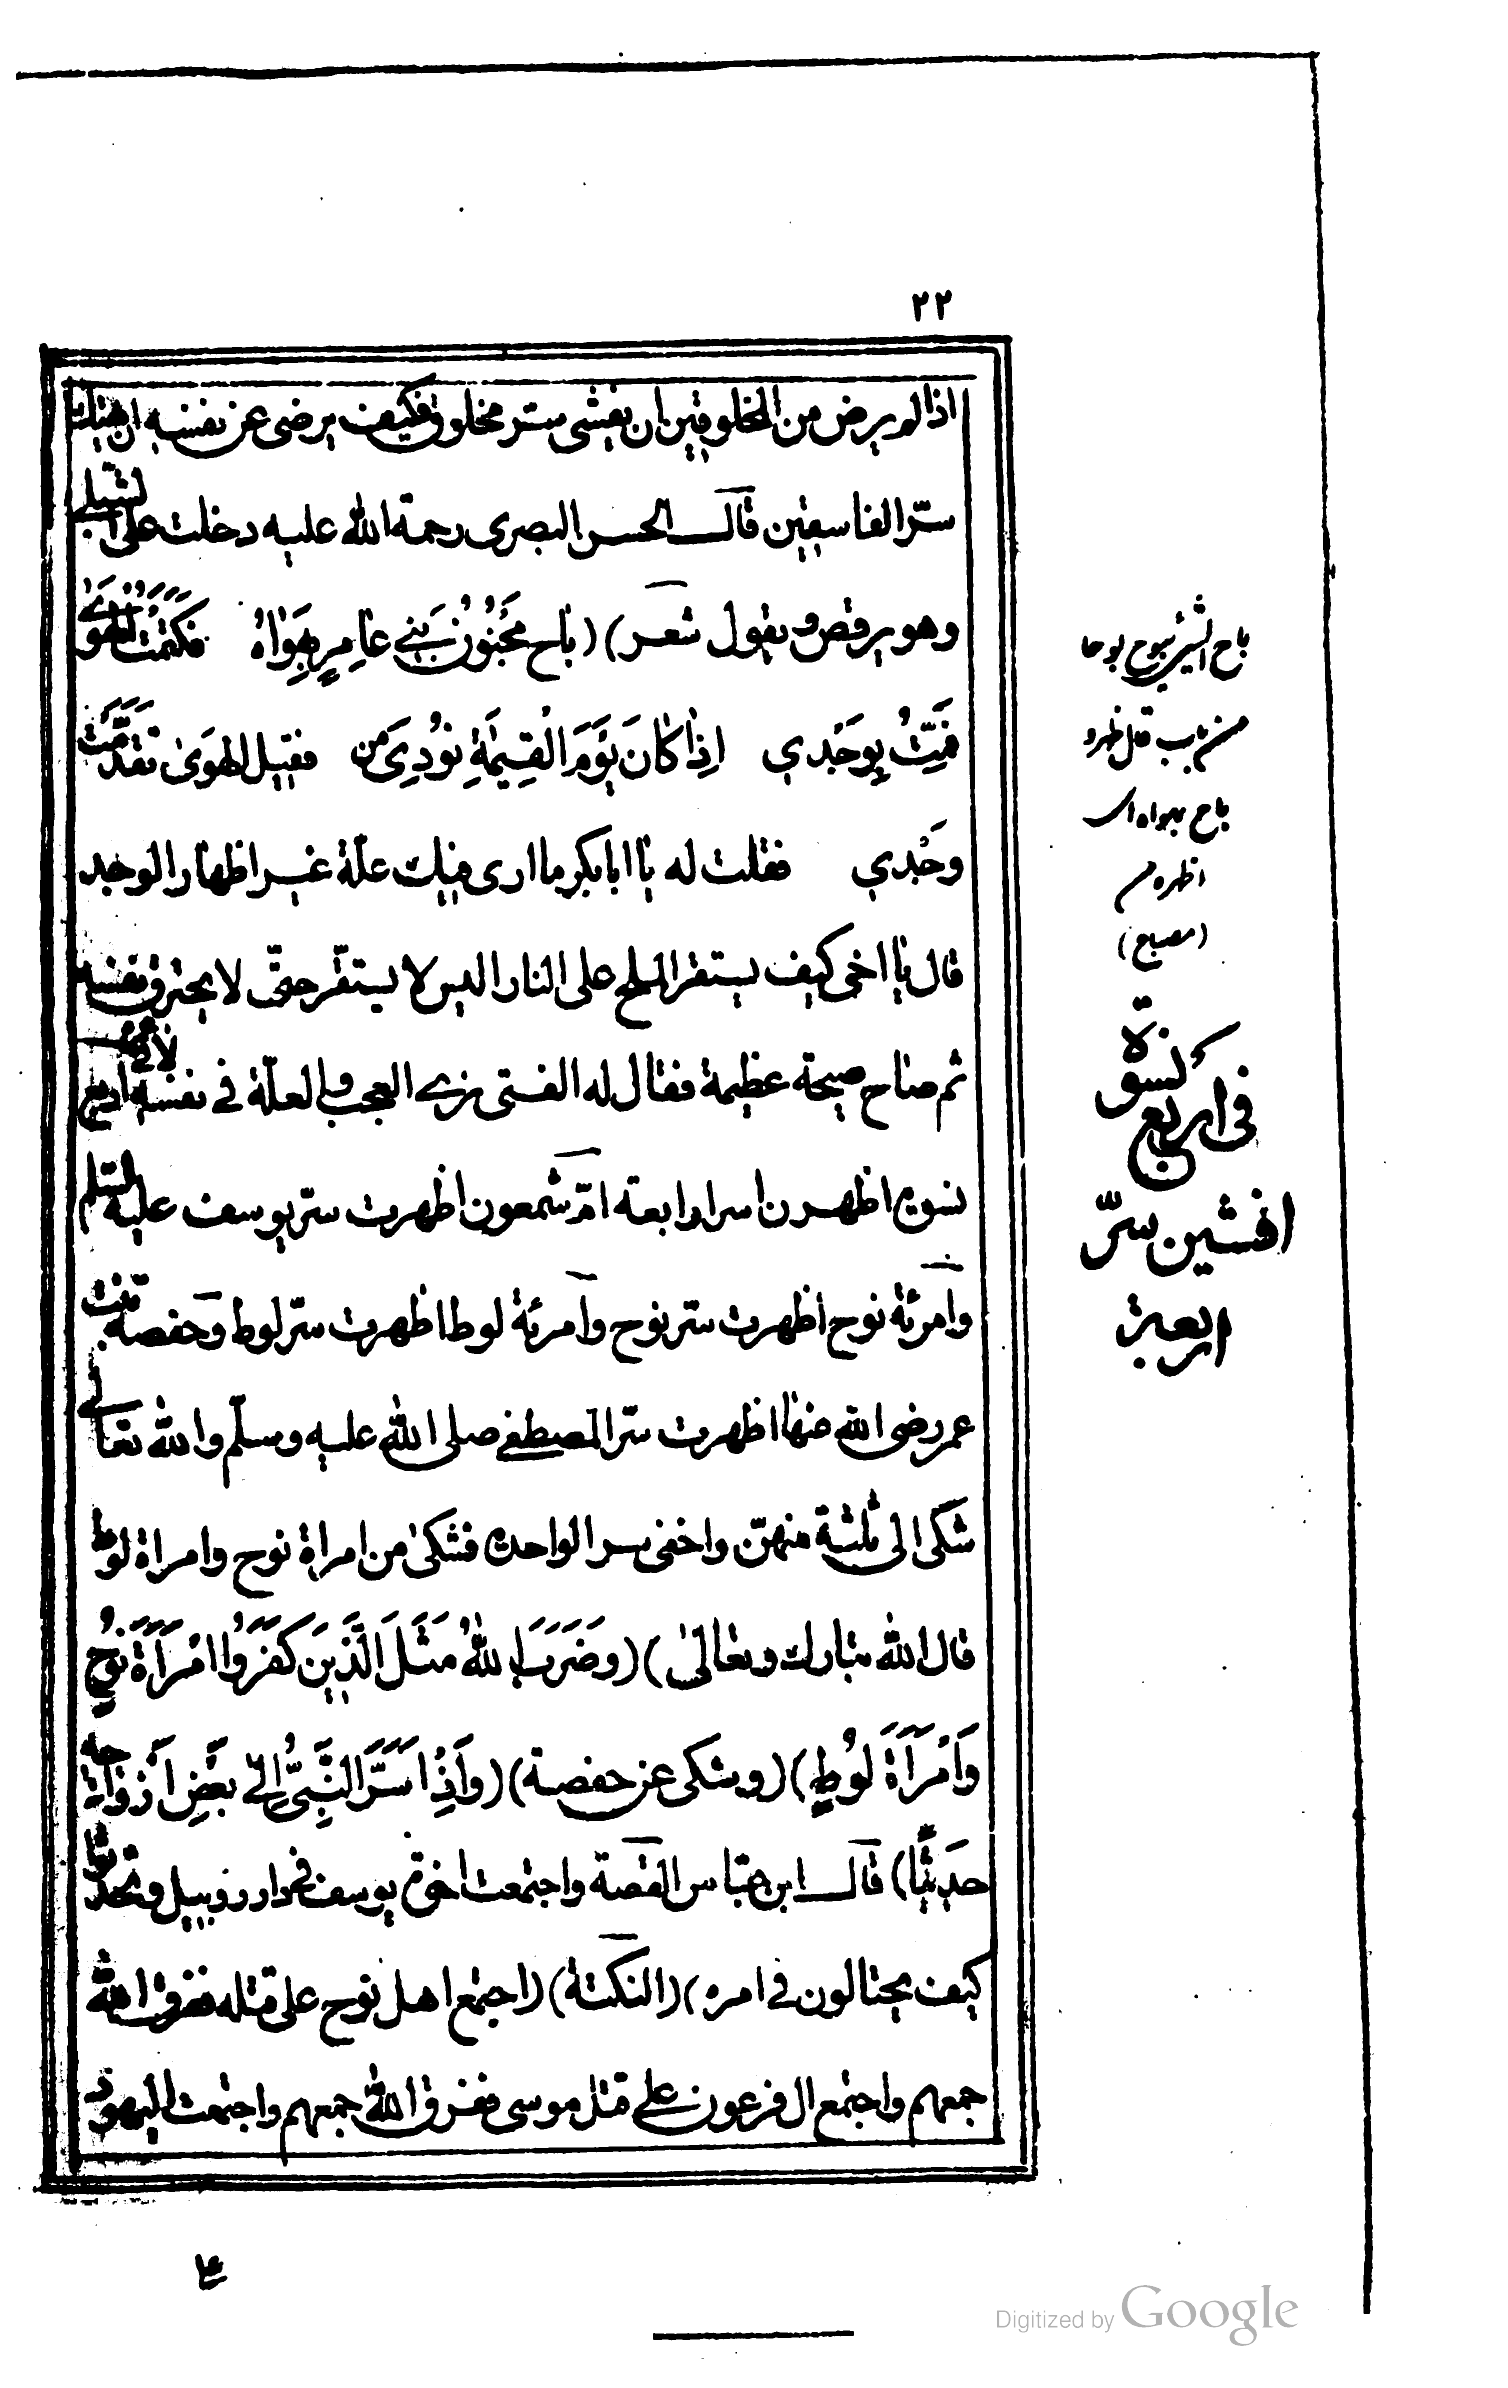 ٢٢
اذا لم يرض من المخلوقين ان يفشى ستر مخلوق فكيف يرضى عن نفسه ان يهتك
ستر الفاسقين قال الحسن البصرى رحمة الله عليه دخلت على الشبلى
وهو يرقص ويقول شعر) (باح مَجْنُونُ بَنِي عَامِرٍ بِهَوَاهُ فكَتَمْتُ الهَوَى
فَمِتُّ بِوَجْدِي اِذَا كَانَ يَوْمَ الْقِيمَةِ نُودِىَ مَن فقيل الهَوَىٰ تَقَدَّمَتْ
وَحْدِي فقلت له يا ابابكر ما ارى فيك علّة غير اظهار الوجد
قال يا اخى كيف يستقر الملح على النار اليس لا يستقر حتّى لا يحترق بنفسه
ثم صاح صيحة عظيمة فقال له الفتى نرى العجب والعلّة فى نفسه لانّ اربع
نسوة اظهرن اسرار اربعة امّ شمعون اظهرت سرّ يوسف عليه السّلم
وامرئة نوح اظهرت سرّ نوح وامرئة لوط اظهرت سرّ لوط وحفصة بنت
عمر رضى الله عنها اظهرت سرّ المصطفى صلى الله عليه وسلّم والله تعالى
شكى الى ثلثة منهنّ واخفى سر الواحدة فشكىٰ من امراة نوح وامراة لوط
قال الله تبارك وتعالىٰ) (وضَرَبَ اللهُ مَثَلَ الَّذِينَ كَفَرُوا امْرَأَةَ نُوحٍ
وَامْرَأَةَ لُوطٍ) (وشكى عن حفصة) (وَاِذْ اَسَرَّ النَّبِىُّ اِلىٰ بَعْضِ اَزْوَاجِه
حَدِيثًا) قال ابن عبّاس القصة واجتمعت اخوة يوسف فى دار روبيل وتحدثوا
كيف يحتالون فى امره) (النكتة) (اجتمع اهل نوح على قتله ففرق الله
جمعهم واجتمع ال فرعون على قتل موسى ففرق الله جمعهم واجتمعت اليهود
باح الشئ يبوح بوحا
من باب قال ظهر و
باح بهواه اى
اظهره م
(مصباح)
فى اربع نسوة
افشين سرّ
اربعة
Digitized by Google